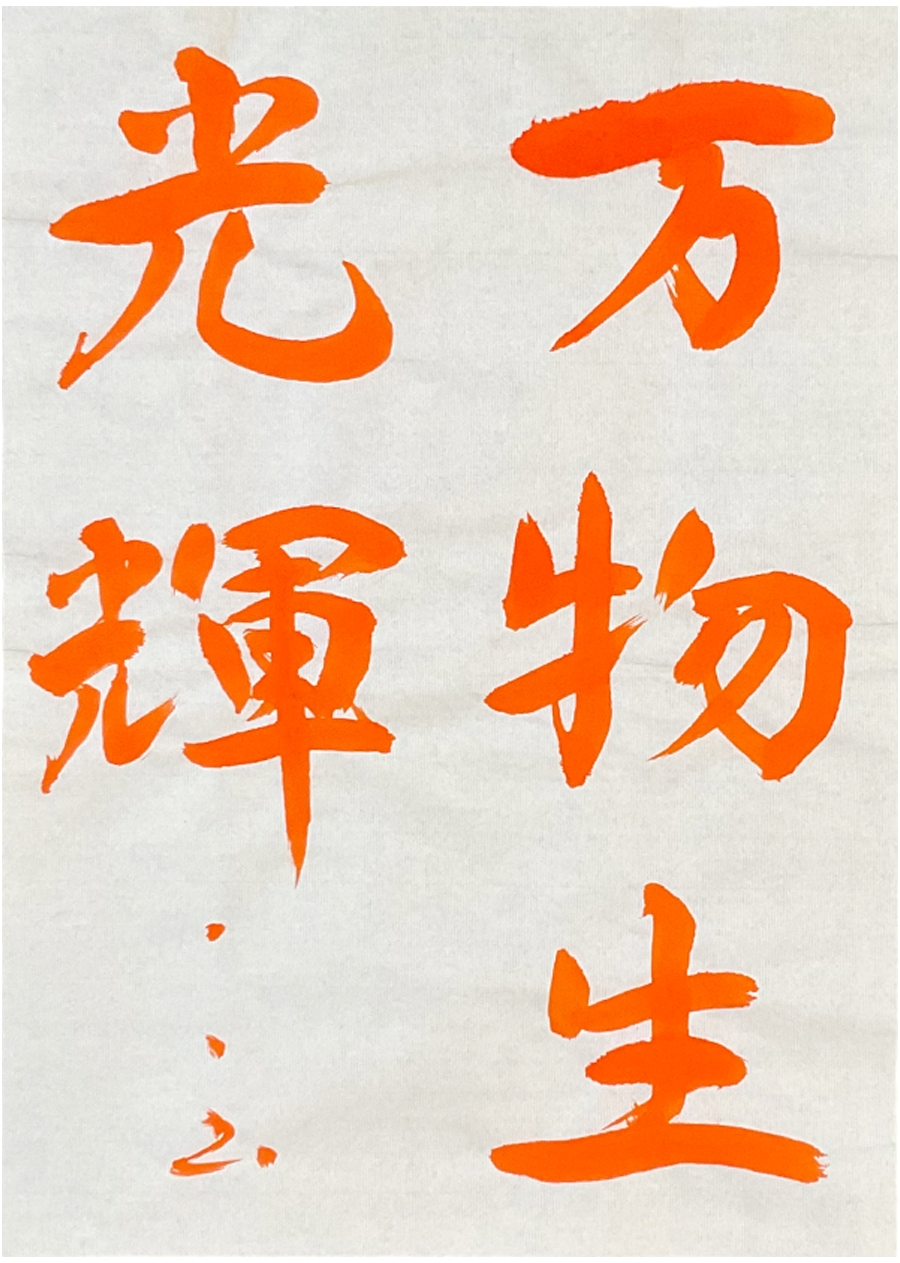 万物生
光輝